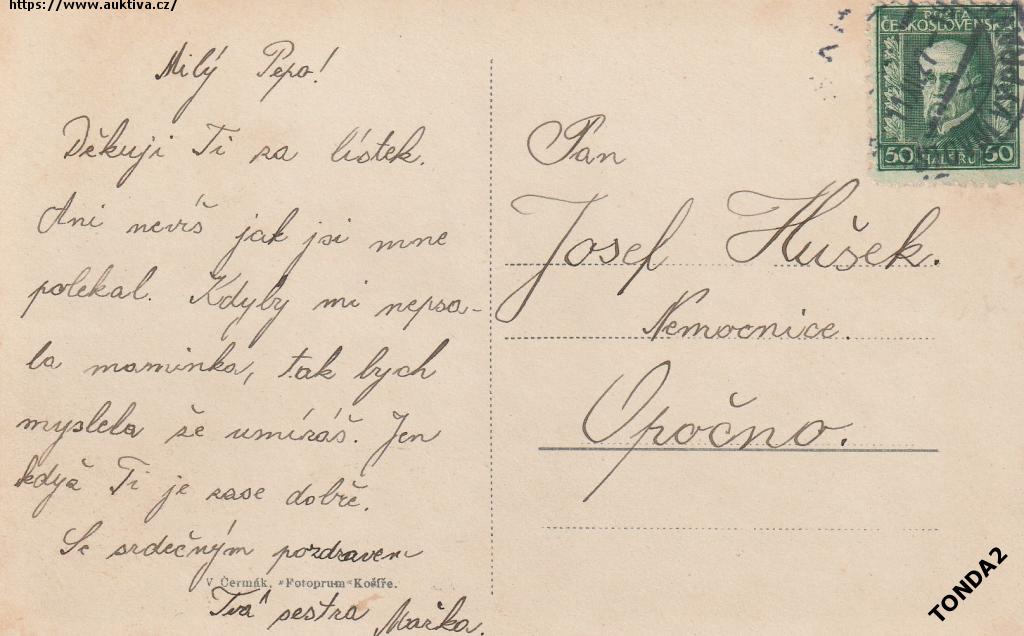 https://www.auktiva.cz/
Milý Pepo!
Děkuji Ti za lístek.
Ani nevíš jak jsi mne
polekal. Kdyby mi nepsa-
la maminka, tak bych
myslela že umíráš. Jen
když Ti je zase dobře.
Se srdečným pozdravem
V Čermák, "Fotoprum" Košíře.
Tvá sestra Mařka.
POŠTA
ČESKOSLOVENSKÁ
50 HALÉŘŮ 50
Pan
Josef Hušek.
Nemocnice.
Opočno.
TONDA2